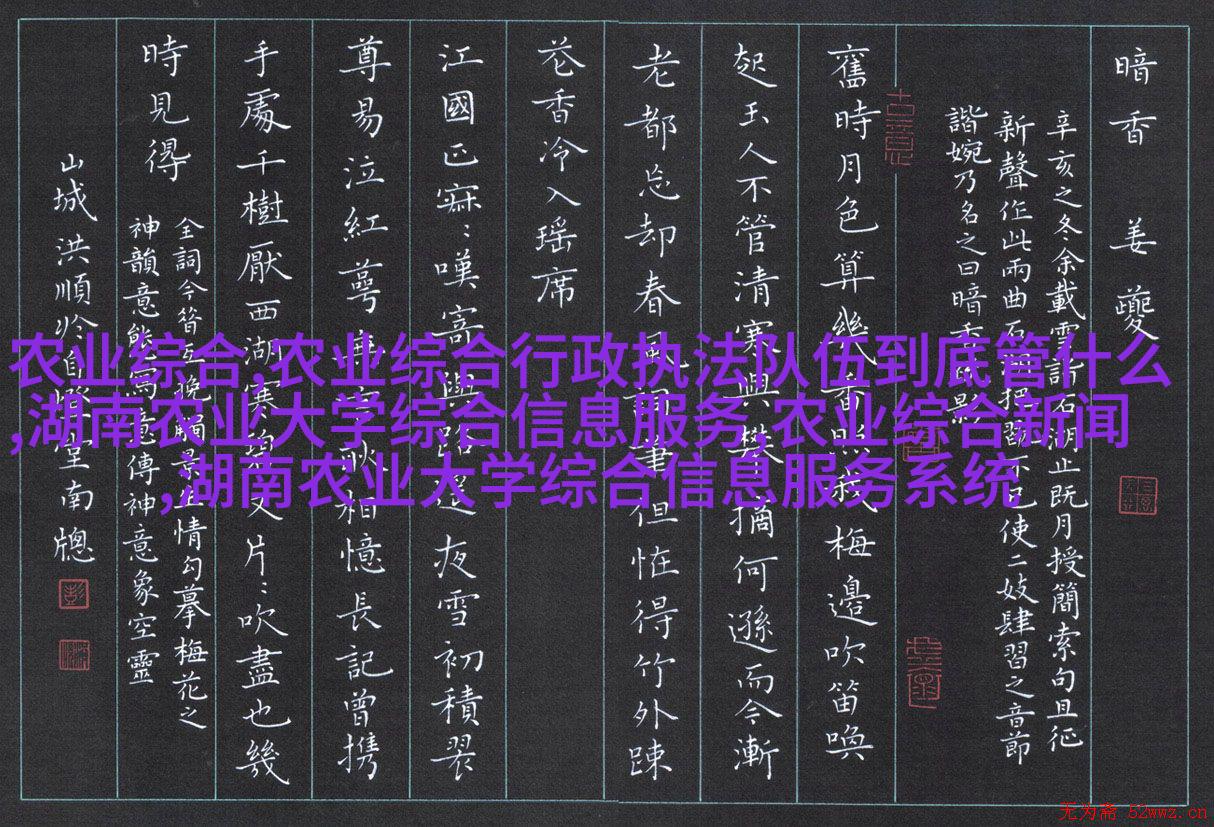 暗香 姜夔
辛亥之冬余載雪詣石湖止既月授簡索句且征
新聲作此兩曲石湖把習不已使二妓肆習之音節
諧婉乃名之曰暗香疏影
舊時月色算幾番照我梅邊吹笛喚
起玉人不管清寒與攀摘何遜而今漸
老都忘却春風詞筆但怪得竹外疎
花香冷入瑶席
江國正寂:嘆寄與路遥夜雪初積翠
尊易泣紅萼無言耿相憶長記曾携
手處千樹壓西湖寒碧又片:吹盡也幾
時見得
全詞今昔互挽觸景生情勾摹梅花之
神韻意態寫意傳神意象空靈
山城洪順於自胳堂南牕
古意
农业综合,农业综合行政执法队伍到底管什么
,湖南农业大学综合信息服务,农业综合新闻
,湖南农业大学综合信息服务系统
无为斋 52wwz.cn